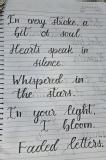 In every stroke, a
bit of soul.
Hearts speak in
silence.
Whispered in
the stars.
In your light,
I bloom.
Faded letters.